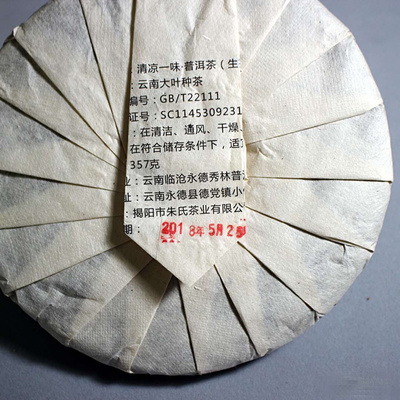 : 清凉一味·普洱茶（生
: 云南大叶种茶
编号: GB/T22111
证号: SC1145309231
: 在清洁、通风、干燥、
在符合储存条件下，适
357克
业: 云南临沧永德秀林普洱
址: 云南永德县德党镇小
: 揭阳市朱氏茶业有限公
期: 2018年5月2